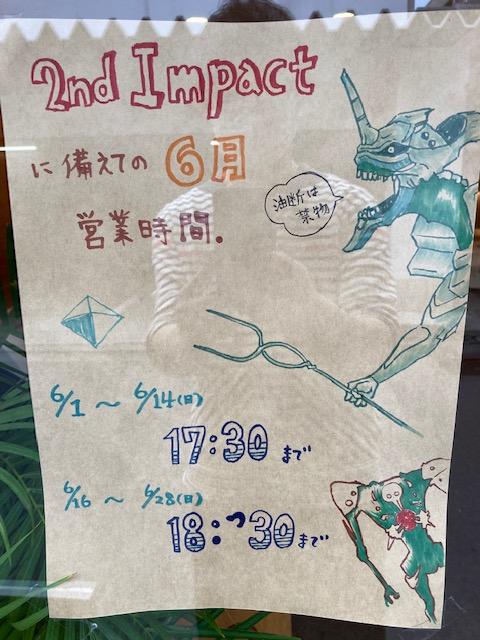 2nd Impact
に備えての 6月
営業時間.
油断は
禁物
6/1 ～ 6/14(日)
17:30 まで
6/16 ～ 6/28(日)
18:30 まで